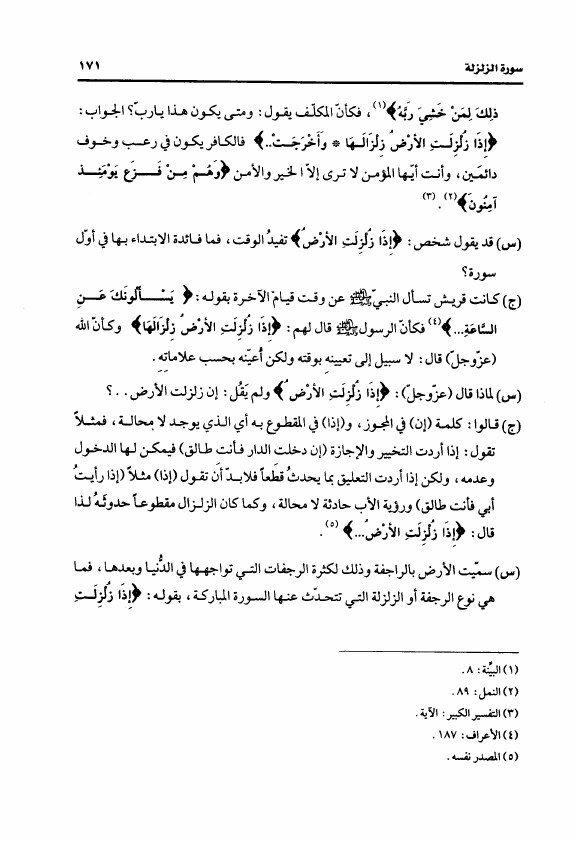 سورة الزلزلة ١٧١
ذلِكَ لِمَنْ خَشِيَ رَبَّهُ﴾(١)، فكأنّ المكلّف يقول: ومتى يكون هذا يا ربّ؟ الجواب:
﴿إِذَا زُلْزِلَتِ الأَرْضُ زِلْزَالَهَا * وَأَخْرَجَتْ..﴾ فالكافر يكون في رعب وخوف
دائمَين، وأنت أيّها المؤمن لا ترى إلاّ الخير والأمن ﴿وَهُمْ مِنْ فَزَعٍ يَوْمَئِذٍ
آمِنُونَ﴾(٢).(٣)
(س) قد يقول شخص: ﴿إِذَا زُلْزِلَتِ الأَرْضُ﴾ تفيدُ الوقت، فما فائدة الابتداء بها في أوّل
سورة؟
(ج) كانت قريش تسأل النبيّ ﷺ عن وقت قيام الآخرة بقوله: ﴿يَسْأَلُونَكَ عَنِ
السَّاعَةِ...﴾(٤) فكأنّ الرسول ﷺ قال لهم: ﴿إِذَا زُلْزِلَتِ الأَرْضُ زِلْزَالَهَا﴾ وكأنّ الله
(عزوجلّ) قال: لا سبيل إلى تعيينه بوقته ولكن أُعيّنه بحسب علاماتِه.
(س) لماذا قال (عزّوجلّ): ﴿إِذَا زُلْزِلَتِ الأَرْضُ﴾ ولم يَقُل: إن زلزلت الأرض..؟
(ج) قالوا: كلمة (إن) في المجوز، و(إذا) في المقطوع به أي الذي يوجد لا محالة، فمثلاً
تقول: إذا أردت التخيير والإجازة (إن دخلت الدار فأنت طالق) فيمكن لها الدخول
وعدمه، ولكن إذا أردت التعليق بما يحدثُ قطعاً فلابدّ أن تقول (إذا) مثلاً (إذا رأيتُ
أبي فأنت طالق) ورؤية الأب حادثة لا محالة، وكما كان الزلزال مقطوعاً حدوثَهُ لذا
قال: ﴿إِذَا زُلْزِلَتِ الأَرْضُ...﴾(٥).
(س) سمّيت الأرض بالراجفة وذلك لكثرة الرجفات التي تواجهها في الدُّنيا وبعدها، فما
هي نوع الرجفة أو الزلزلة التي تتحدّث عنها السورة المباركة، بقوله: ﴿إِذَا زُلْزِلَتِ
(١) البيّنة: ٨.
(٢) النمل: ٨٩.
(٣) التفسير الكبير: الآية.
(٤) الأعراف: ١٨٧.
(٥) المصدر نفسه.